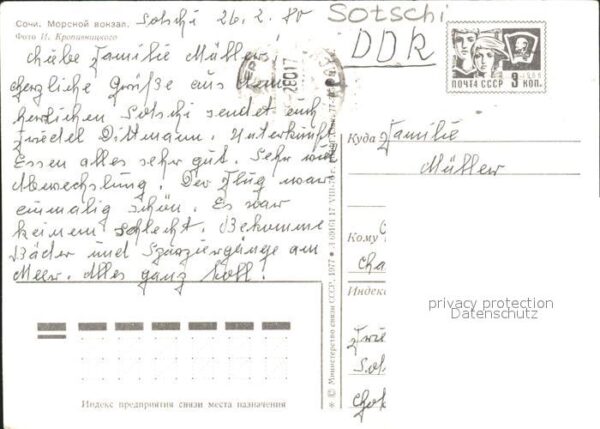 Сочи. Морской вокзал.
Фото И. Кропивницкого
Sotschi 26.2.80
Sotschi
DDR
ПОЧТА СССР 9 КОП.
Liebe Familie Müller!
Herzliche Grüße aus dem
herrlichen Sotschi sendet euch
Friedel Dittmann. Unterkunft
Essen alles sehr gut. Sehr viel
Abwechslung. Der Flug war
einmalig schön. Es war
keinem schlecht. Bekomme
Bäder und Spaziergänge am
Meer. Alles ganz toll!
Куда Familie
Müller
Кому
Индекс
privacy protection
Datenschutz
* © Министерство связи СССР, 1977
Индекс предприятия связи места назначения